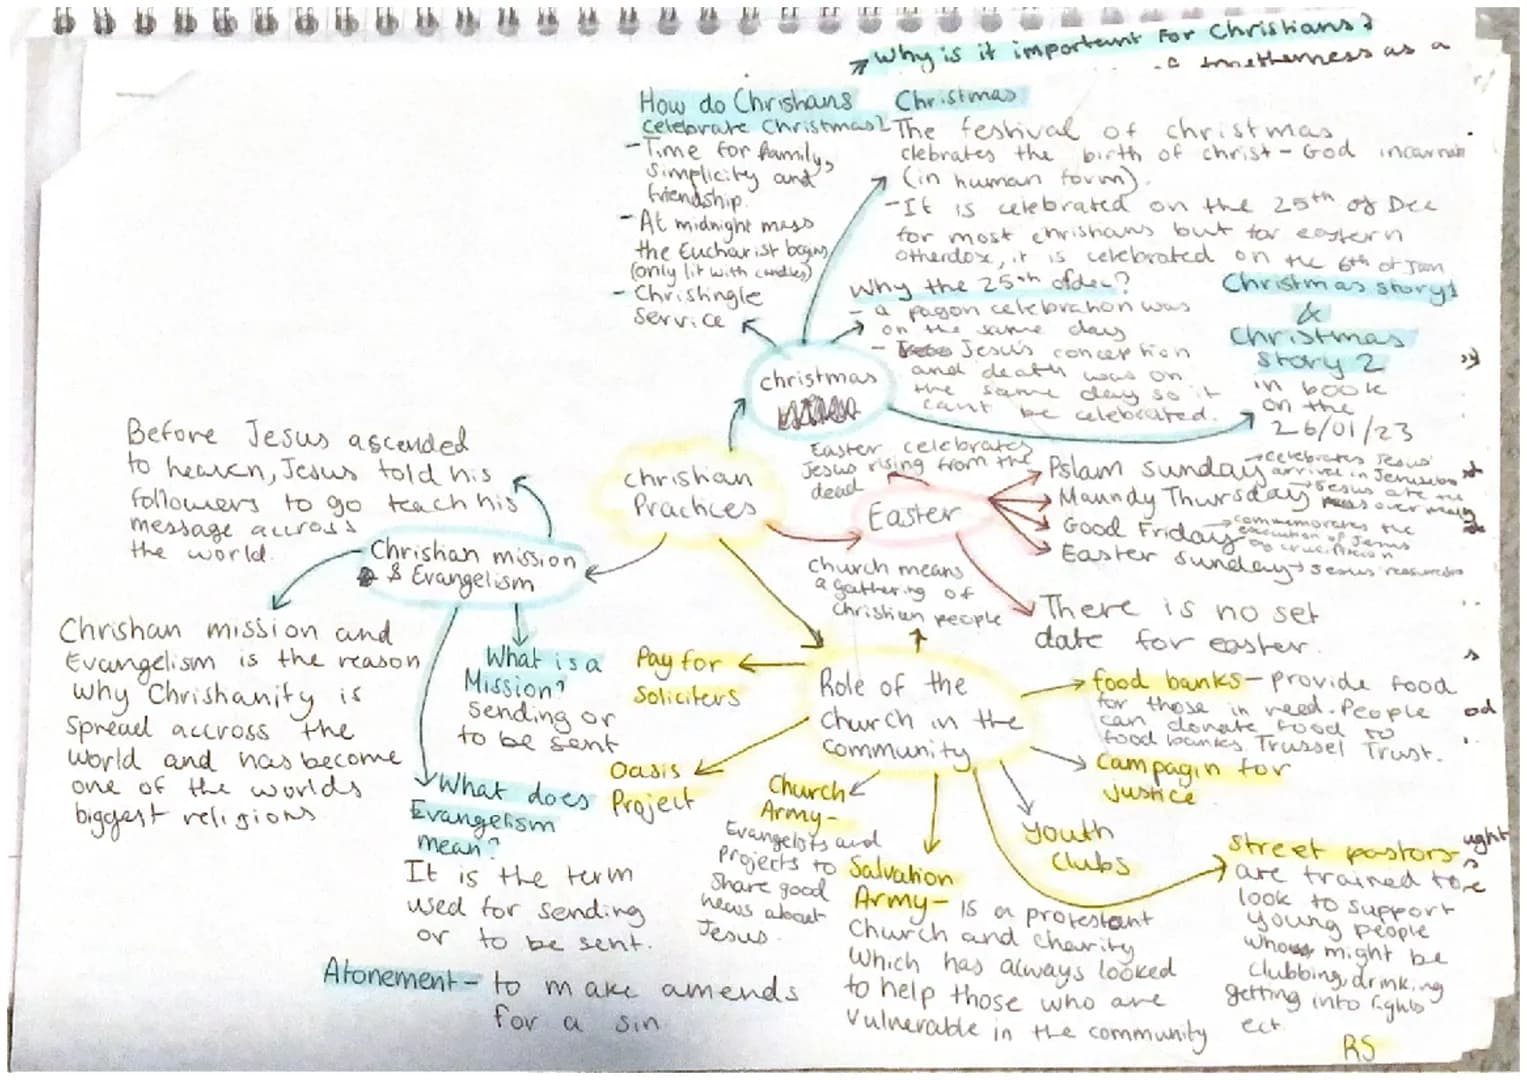 Why is it important for Christians?
togetherness as a
How do Christians
celebrate Christmas?
- Time for family,
simplicity and
friendship.
- At midnight mass
the Eucharist begins
(only lit with candles)
- Christingle
service
Christmas
The festival of christmas
clebrates the birth of christ - God incarnate
(in human form).
- It is celebrated on the 25th of Dec
for most christians but for eastern
otherdox, it is celebrated on the 6th of Jan
Why the 25th of dec?
- a pagon celebration was
on the same day
- Jesus conception
and death was on
the same day so it
cant be celebrated.
Christmas story 1
&
Christmas
story 2
in book
on the
26/01/23
christmas
christian
Practices
Easter celebrates
Jesus rising from the
dead
Easter
Pslam sunday → celebrates Jesus'
arrival in Jerusalem
Maundy Thursday → Jesus ate the
passover meal
Good Friday → commemorates the
execution of Jesus
crucifixion
Easter sunday → Jesus resurrection
There is no set
date for easter.
Before Jesus ascended
to heaven, Jesus told his
followers to go teach his
message accross
the world.
Christian mission
& Evangelism
Christian mission and
Evangelism is the reason
why Christianity is
spread accross the
world and has become
one of the worlds
biggest religions.
What is a
Mission?
sending or
to be sent
What does
Evangelism
mean?
It is the term
used for sending
or to be sent.
Atonement - to make amends
for a sin
church means
a gathering of
Christian people
Role of the
church in the
community
Pay for
Soliciters
Oasis
Project
Church
Army -
Evangelists and
projects to
share good
news about
Jesus.
Salvation
Army - is a protestant
church and charity
which has always looked
to help those who are
vulnerable in the community
Youth
clubs
food banks - provide food
for those in need. People
can donate food to
food banks. Trussel Trust.
Campagin for
justice
Street pastors -
are trained to
look to support
young people
who might be
clubbing, drinking
getting into fights
ect.
RS